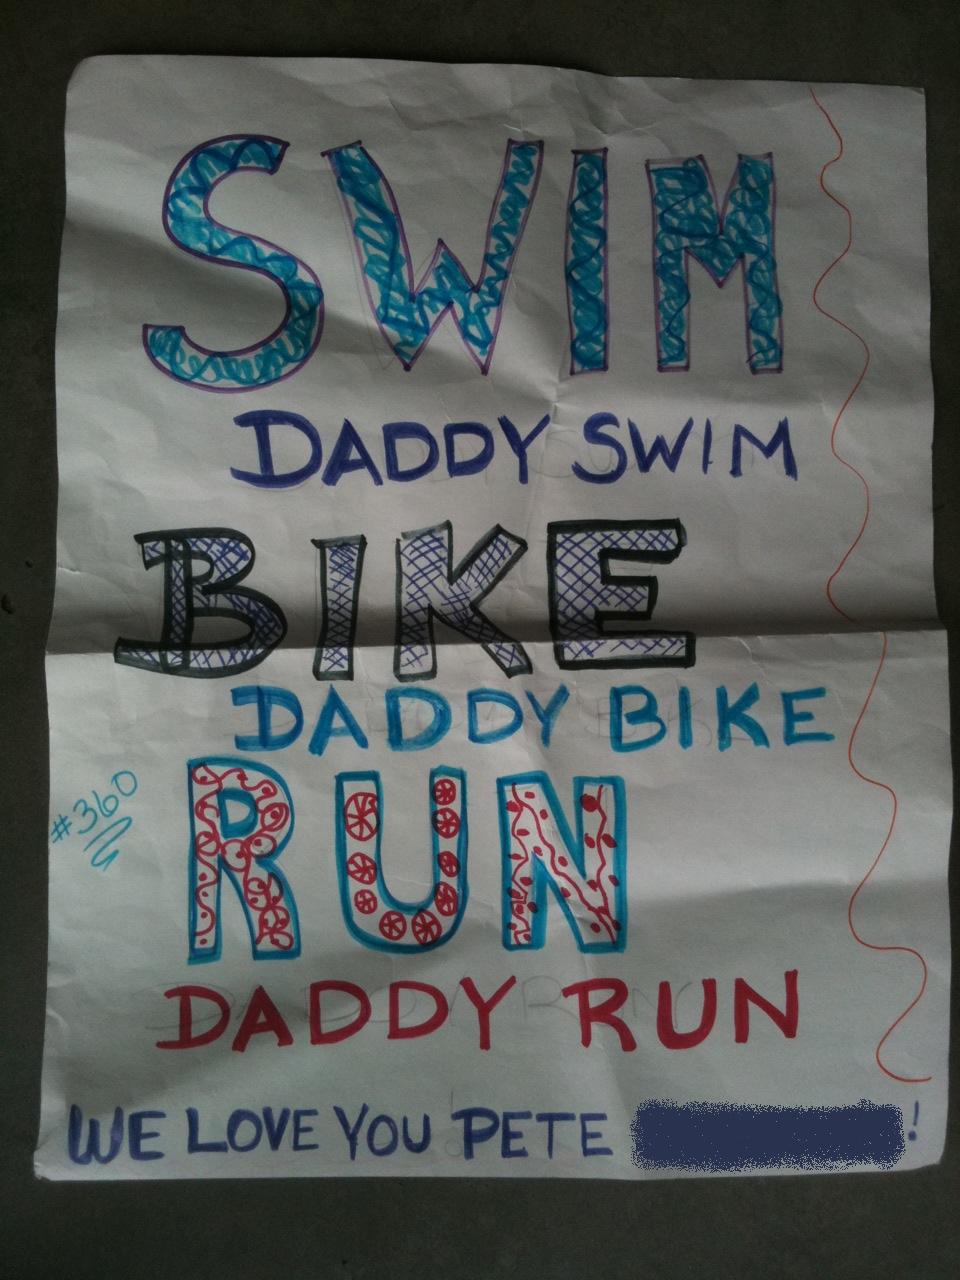 SWIM
DADDY SWIM
BIKE
DADDY BIKE
#360
RUN
DADDY RUN
WE LOVE YOU PETE !